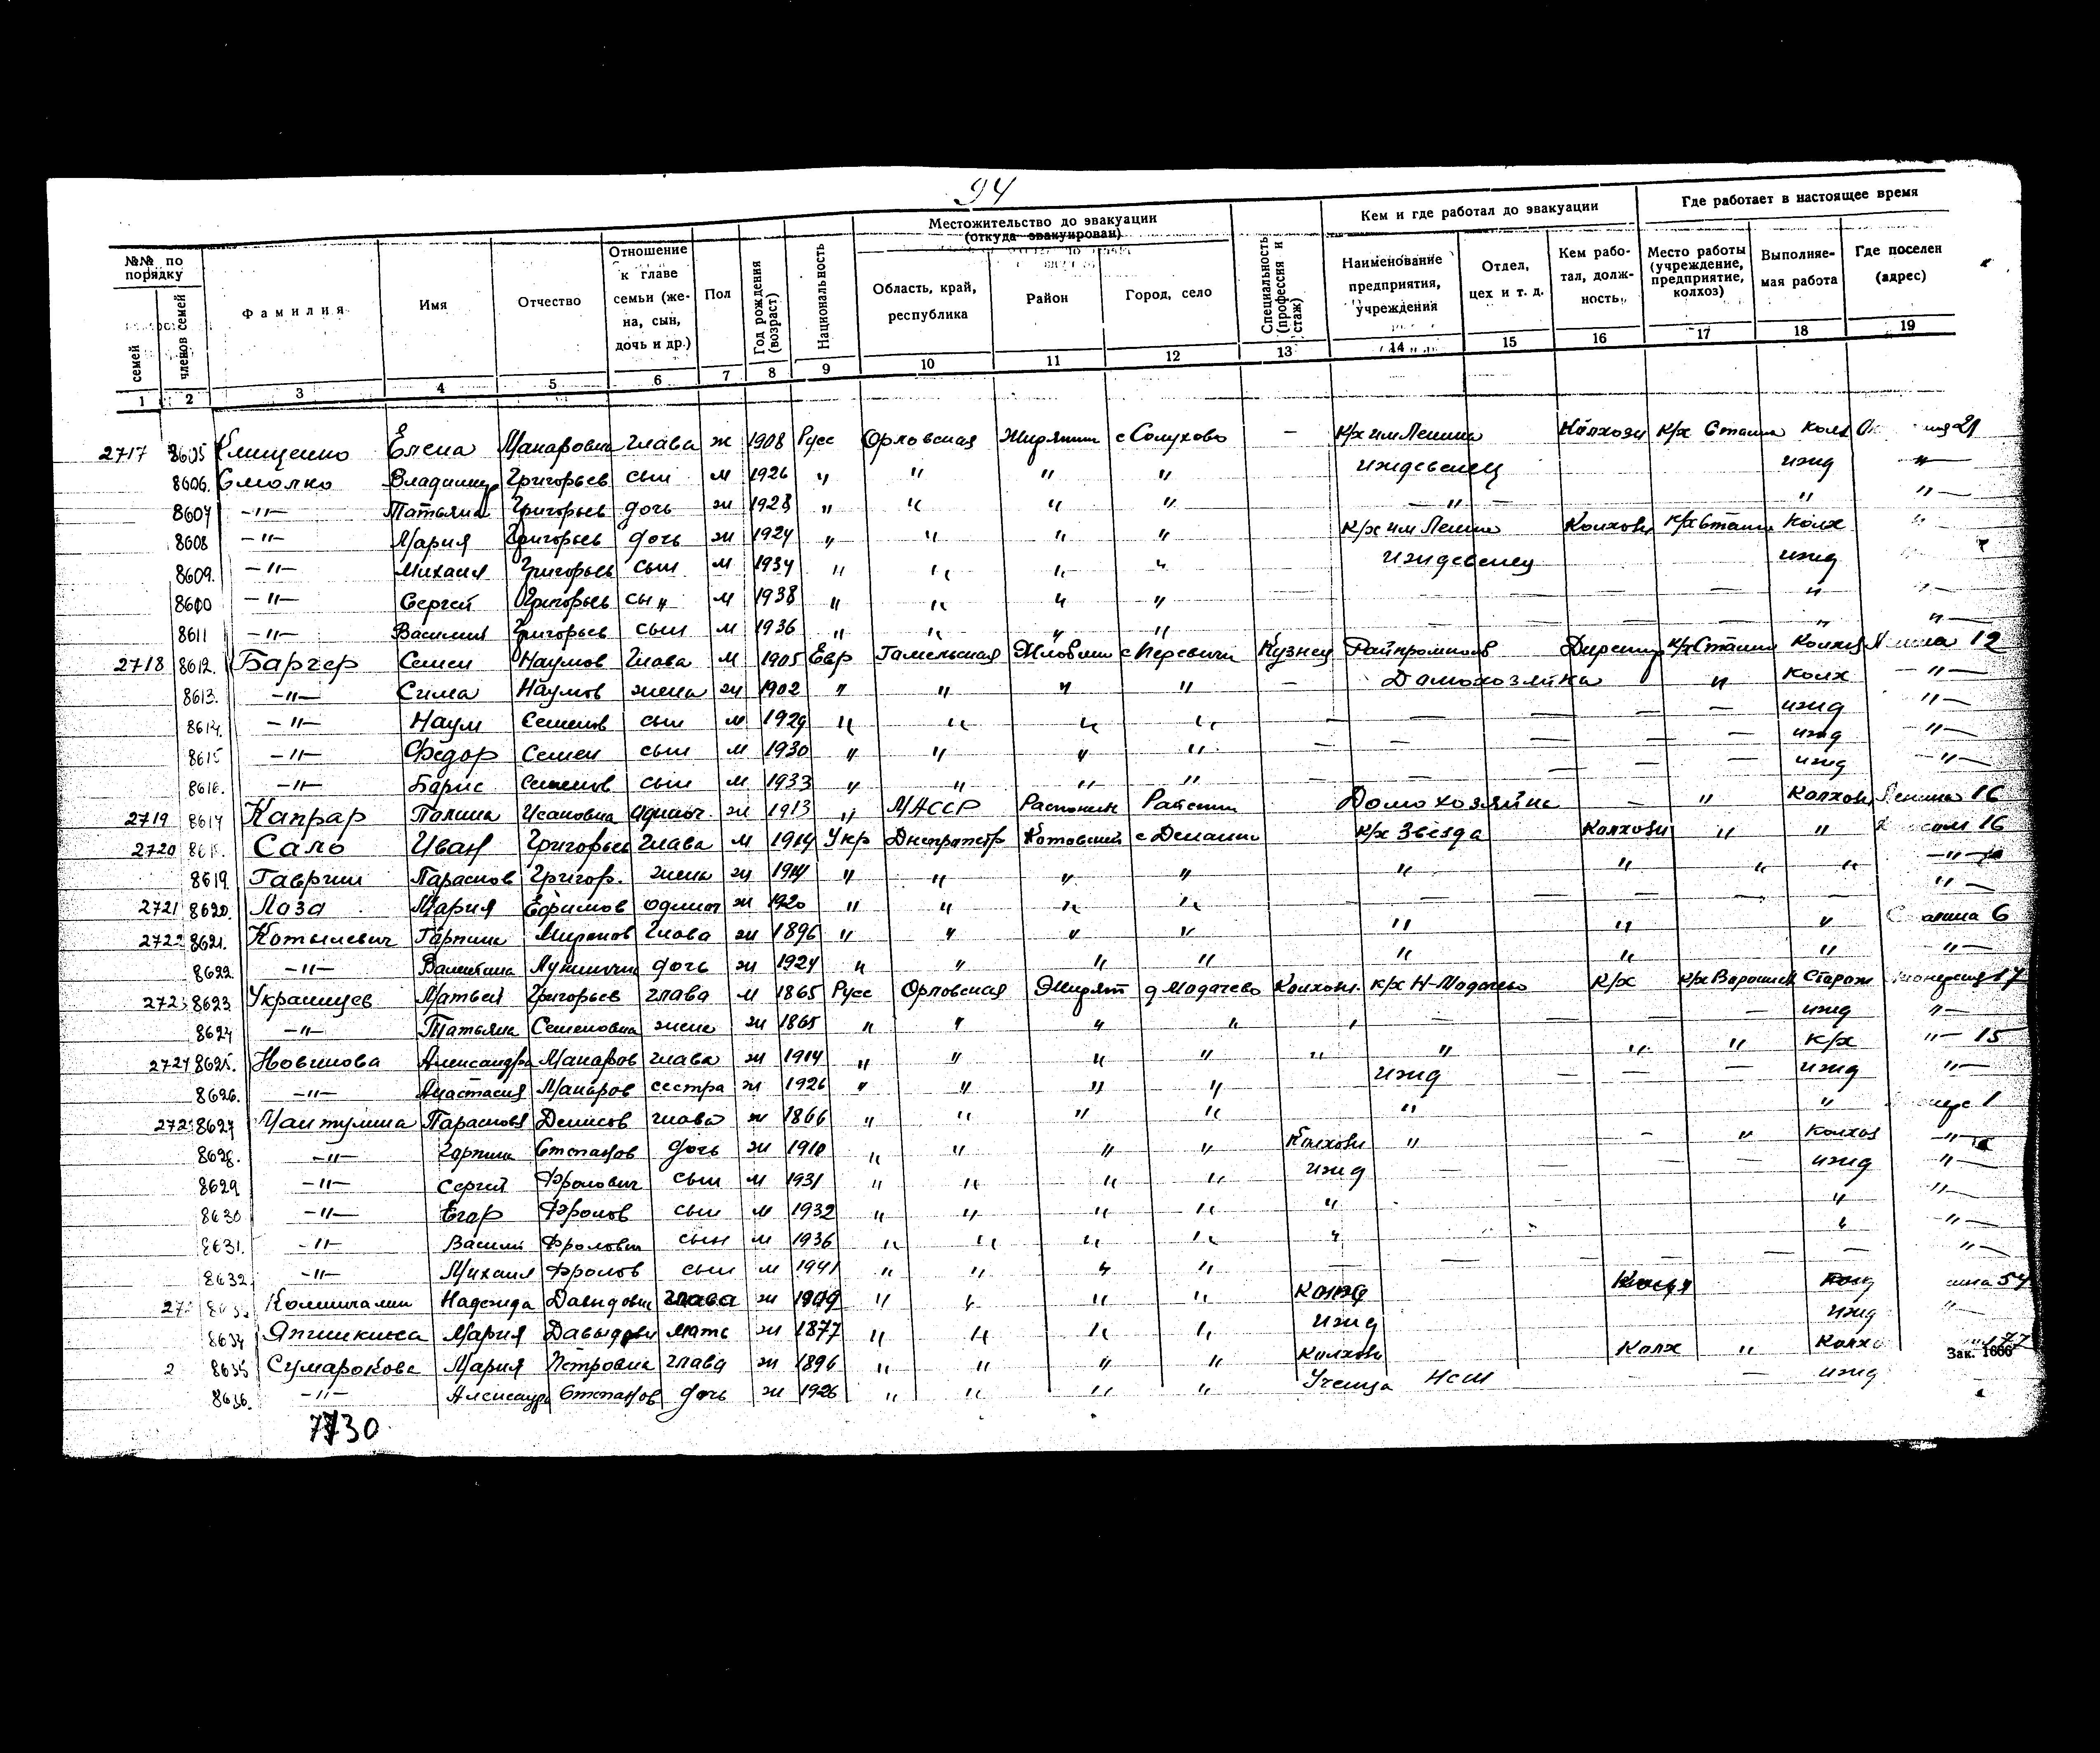 94
№№ по порядку
семей
членов семей
Фамилия
Имя
Отчество
Отношение к главе семьи (жена, сын, дочь и др.)
Пол
Год рождения (возраст)
Национальность
Местожительство до эвакуации (откуда эвакуирован)
Область, край, республика
Район
Город, село
Специальность (профессия и стаж)
Кем и где работал до эвакуации
Наименование предприятия, учреждения
Отдел, цех и т. д.
Кем работал, должность
Где работает в настоящее время
Место работы (учреждение, предприятие, колхоз)
Выполняемая работа
Где поселен (адрес)
1 2 3 4 5 6 7 8 9 10 11 12 13 14 15 16 17 18 19
2717 8605 Клищенко Елена Макаровна глава ж 1908 Русс Орловская Жирятин с Солухово — к/х им Ленина Колхозн к/х Сталина колх 21
8606. Смолко Владимир Григорьев сын м 1926 " " " " иждевенец ижд "
8607 —"— Татьяна Григорьев дочь ж 1928 " " " " —"— " "—
8608 —"— Мария Григорьев дочь ж 1924 " " " " к/х им Ленина Колхозн к/х Сталин Колх "
8609. —"— Михаил Григорьев сын м 1934 " " " " Иждевенец ижд
8610 —"— Сергей Григорьев сын м 1938 " " " " — — — "
8611 —"— Василий Григорьев сын м 1936 " " " " — — — "—
2718 8612. Баргер Семен Наумов Глава м 1905 Евр Гомельская Жлобин с Перевичи Кузнец Райпромкомб Директ к/х Сталин Колхоз 12
8613. —"— Сима Наумов жена ж 1902 " " " " — Домохозяйка " колх —"—
8614. —"— Наум Семенов сын м 1929 " " " " — — — — ижд "—
8615 —"— Федор Семен сын м 1930 " " " " — — — — ижд "—
8616. —"— Барис Семенов сын м 1933 " " " " — — — — ижд —"—
2719 8617 Капрар Полина Исаковна Одиноч. ж 1913 " МАССР Домохозяйка — " Колхозн Ленина 16
2720 Сало Иван Григорьев Глава м 1914 Укр Днепропетр Котовский к/х Звезда Колхозн " " 16
8619. Гаврии Парасков Григор. жена ж 1914 " " " " " " " " —"—
2721 8620. Лаза Мария Ефимов одиноч ж 1920 " " " " — — — — "—
2722 8621. Котылевич Гарпина Миронов Глава ж 1896 " " " " " " " Сталина 6
8622. —"— Валентина дочь ж 1924 " " " " " " " "—
2723 8623 Украинцев Матвей Григорьев глава м 1865 Русс Орловская Жирят д Модачево Колхозн. к/х Н-Модачево К/х к/х Ворошил Сторож 17
8624 —"— Татьяна Семеновна жена ж 1865 " " " " — — — — ижд "—
2724 8625. Новикова Александра Макаров глава ж 1914 " " " " " " " " к/х "— 15
8626. —"— Анастасия Макаров сестра ж 1926 " " " " ижд — — — ижд "—
8627 Параскова Денисов глава ж 1866 " " " " " " 1
8628. —"— Гарпина Степанов дочь ж 1910 " " " " Колхозн " — " Колхоз —"—
8629 —"— Сергей Фролович сын м 1931 " " " " ижд — — — ижд "—
8630 —"— Егар Фролов сын м 1932 " " " " " " "—
8631. —"— Василий Фролович сын м 1936 " " " " " " "—
8632 —"— Михаил Фролов сын м 1941 " " " " — — — — — "—
Надежда Давидовн глава ж 1909 " " " " 54
8634 Япишкина Мария Давыдовн мать ж 1877 " " " " ижд ижд "—
8635 Сумарокова Мария Петровна глава ж 1896 " " " " Колхозн Колх " Колхо
8636. —"— Александр Степанов дочь ж 1926 " " " " Ученица НСШ — — ижд
Зак. 1666
7730